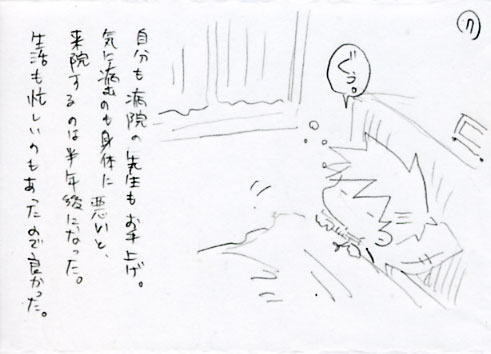 ⑦
ぐう。
自分も病院の先生もお手上げ。
気に病むのも身体に悪いと、
来院するのは半年後になった。
生活も忙しいのもあったので良かった。